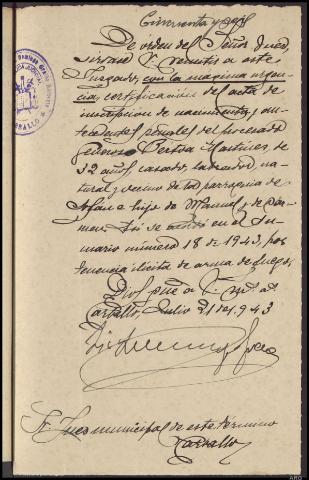 Cincuenta y seis
De orden del Señor Juez,
sírvase V. remitir a este
Juzgado, con la máxima urgen-
cia, certificación del acta de
inscripción de nacimiento y an-
tecedentes penales del procesado
Generoso Martínez, de
32 años, casado, labrador, na-
tural y vecino de la parroquia de
e hijo de Manuel y de Cár-
men. Así se en el su-
mario número 18 de 1943, por
tenencia ilícita de arma de fuego.
Dios gue a V. ms. as.
Carballo, Julio 21 de 1943
Sr. Juez municipal de este término
Carballo
CARBALLO